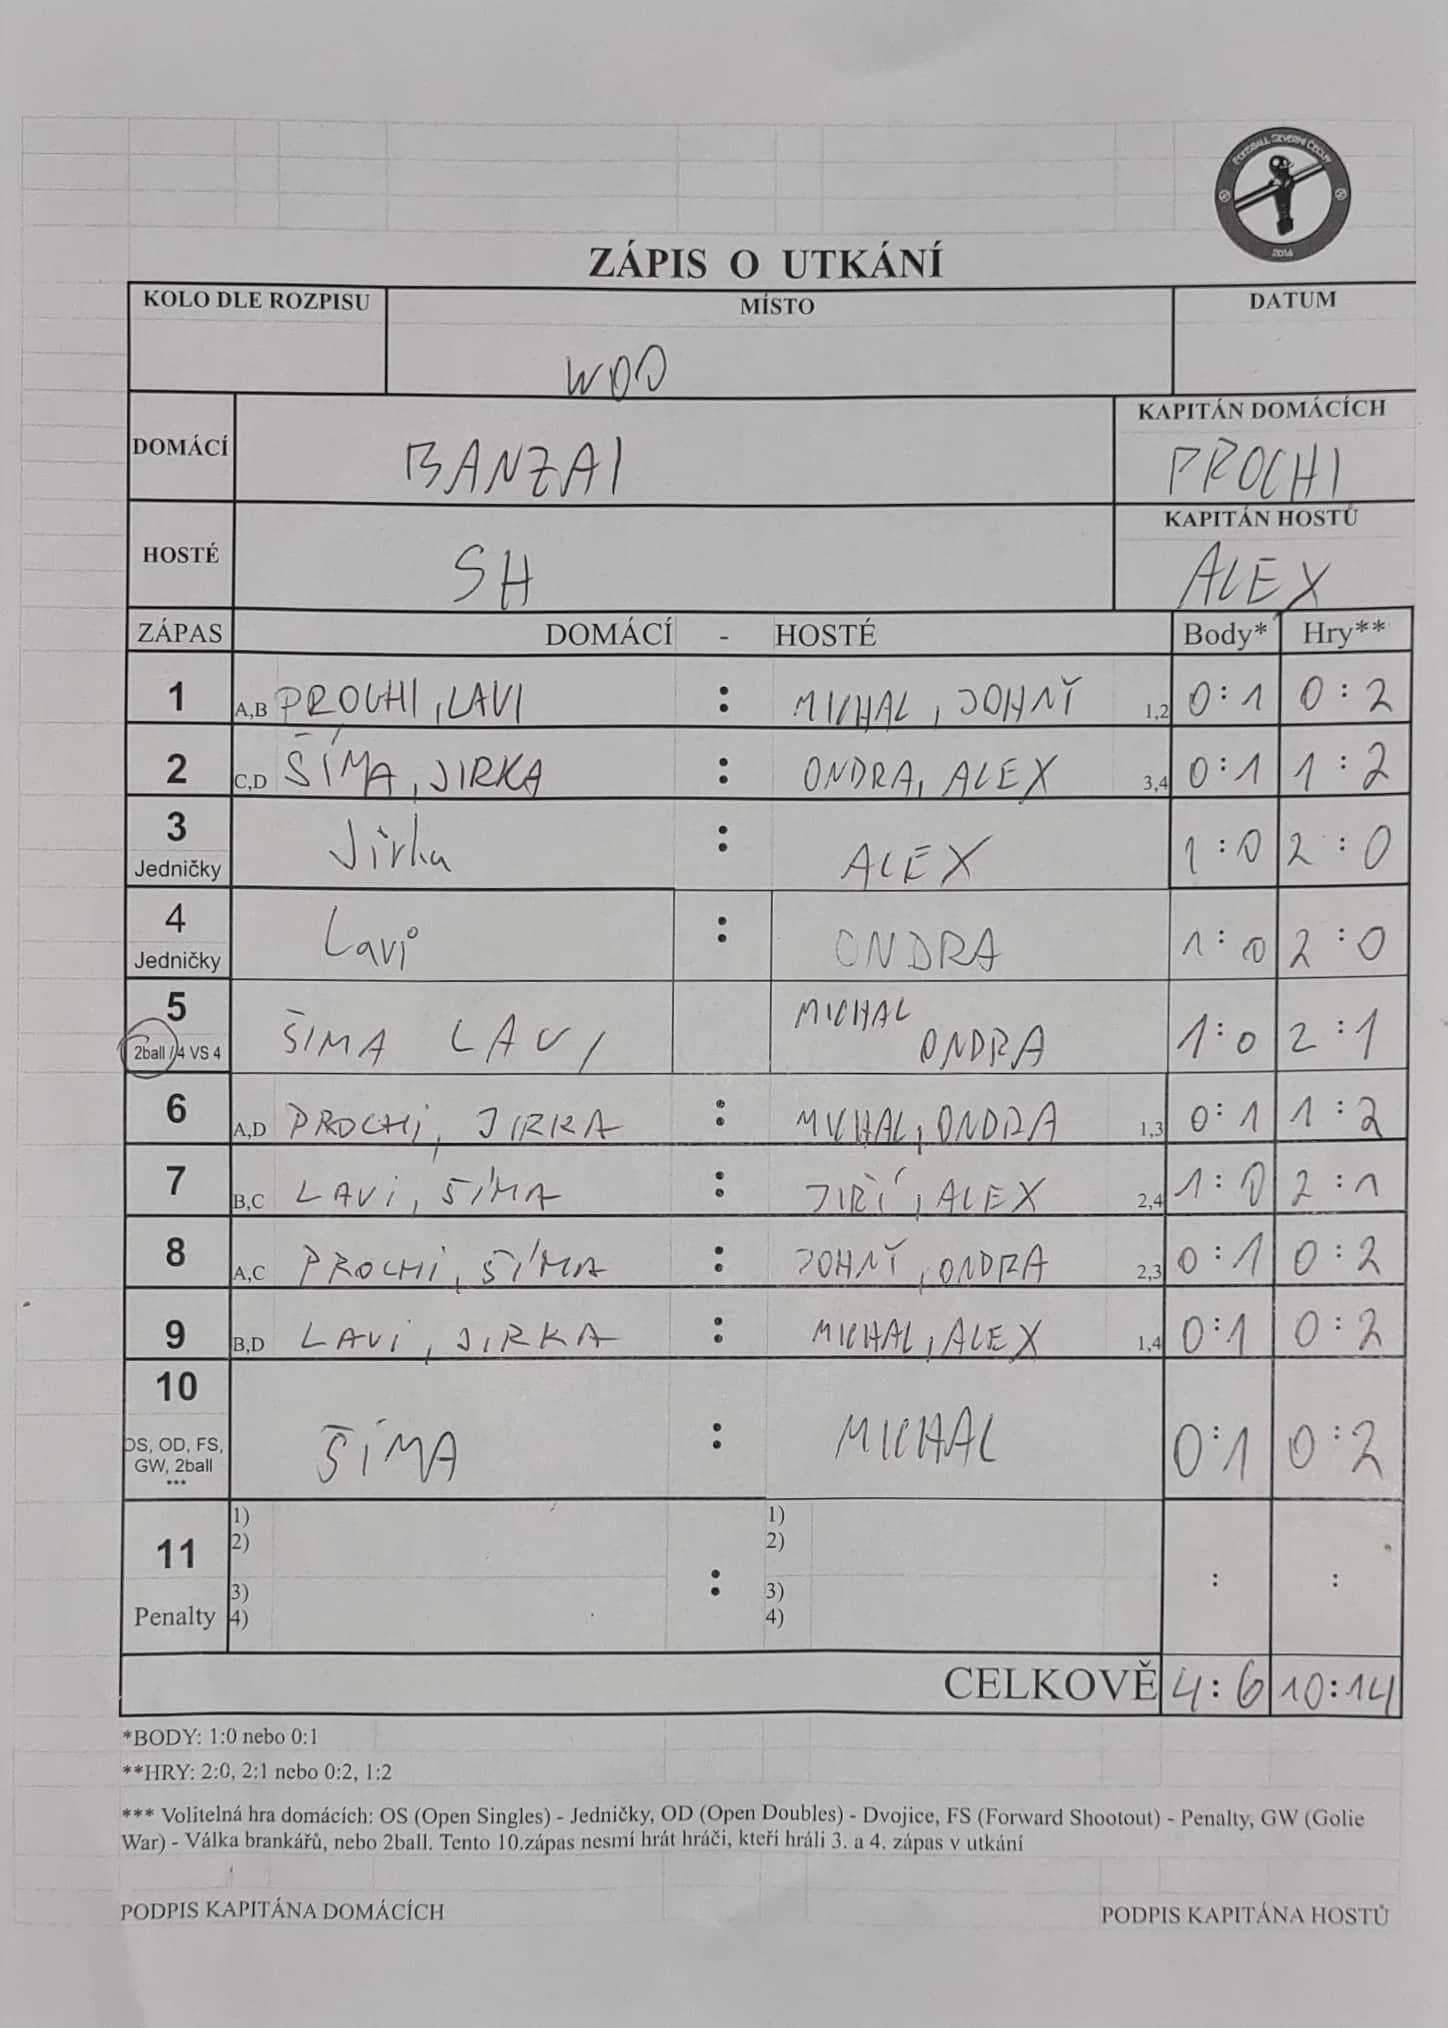 FOOSBALL SEVERNÍ ČECHY
2014
ZÁPIS O UTKÁNÍ
KOLO DLE ROZPISU
MÍSTO
DATUM
WOO
DOMÁCÍ
BANZAI
KAPITÁN DOMÁCÍCH
PROCHI
HOSTÉ
SH
KAPITÁN HOSTŮ
ALEX
ZÁPAS DOMÁCÍ - HOSTÉ Body* Hry**
1 A,B PROCHI, LAVI : MICHAL, JOHNY 1,2 0:1 0:2
2 C,D ŠÍMA, JIRKA : ONDRA, ALEX 3,4 0:1 1:2
3 Jirka : ALEX 1:0 2:0
Jedničky
4 Lavi : ONDRA 1:0 2:0
Jedničky
5 ŠIMA LAVI MICHAL ONDRA 1:0 2:1
2ball / 4 VS 4
6 A,D PROCHI, JIRKA : MICHAL, ONDRA 1,3 0:1 1:2
7 B,C LAVI, ŠÍMA : JIŘÍ, ALEX 2,4 1:0 2:1
8 A,C PROCHI, ŠÍMA : JOHNY, ONDRA 2,3 0:1 0:2
9 B,D LAVI, JIRKA : MICHAL, ALEX 1,4 0:1 0:2
10 ŠÍMA : MICHAL 0:1 0:2
OS, OD, FS,
GW, 2ball
***
11 : : :
Penalty
1) 1)
2) 2)
3) 3)
4) 4)
CELKOVĚ 4:6 10:14
*BODY: 1:0 nebo 0:1
**HRY: 2:0, 2:1 nebo 0:2, 1:2
*** Volitelná hra domácích: OS (Open Singles) - Jedničky, OD (Open Doubles) - Dvojice, FS (Forward Shootout) - Penalty, GW (Golie
War) - Válka brankářů, nebo 2ball. Tento 10.zápas nesmí hrát hráči, kteří hráli 3. a 4. zápas v utkání
PODPIS KAPITÁNA DOMÁCÍCH
PODPIS KAPITÁNA HOSTŮ